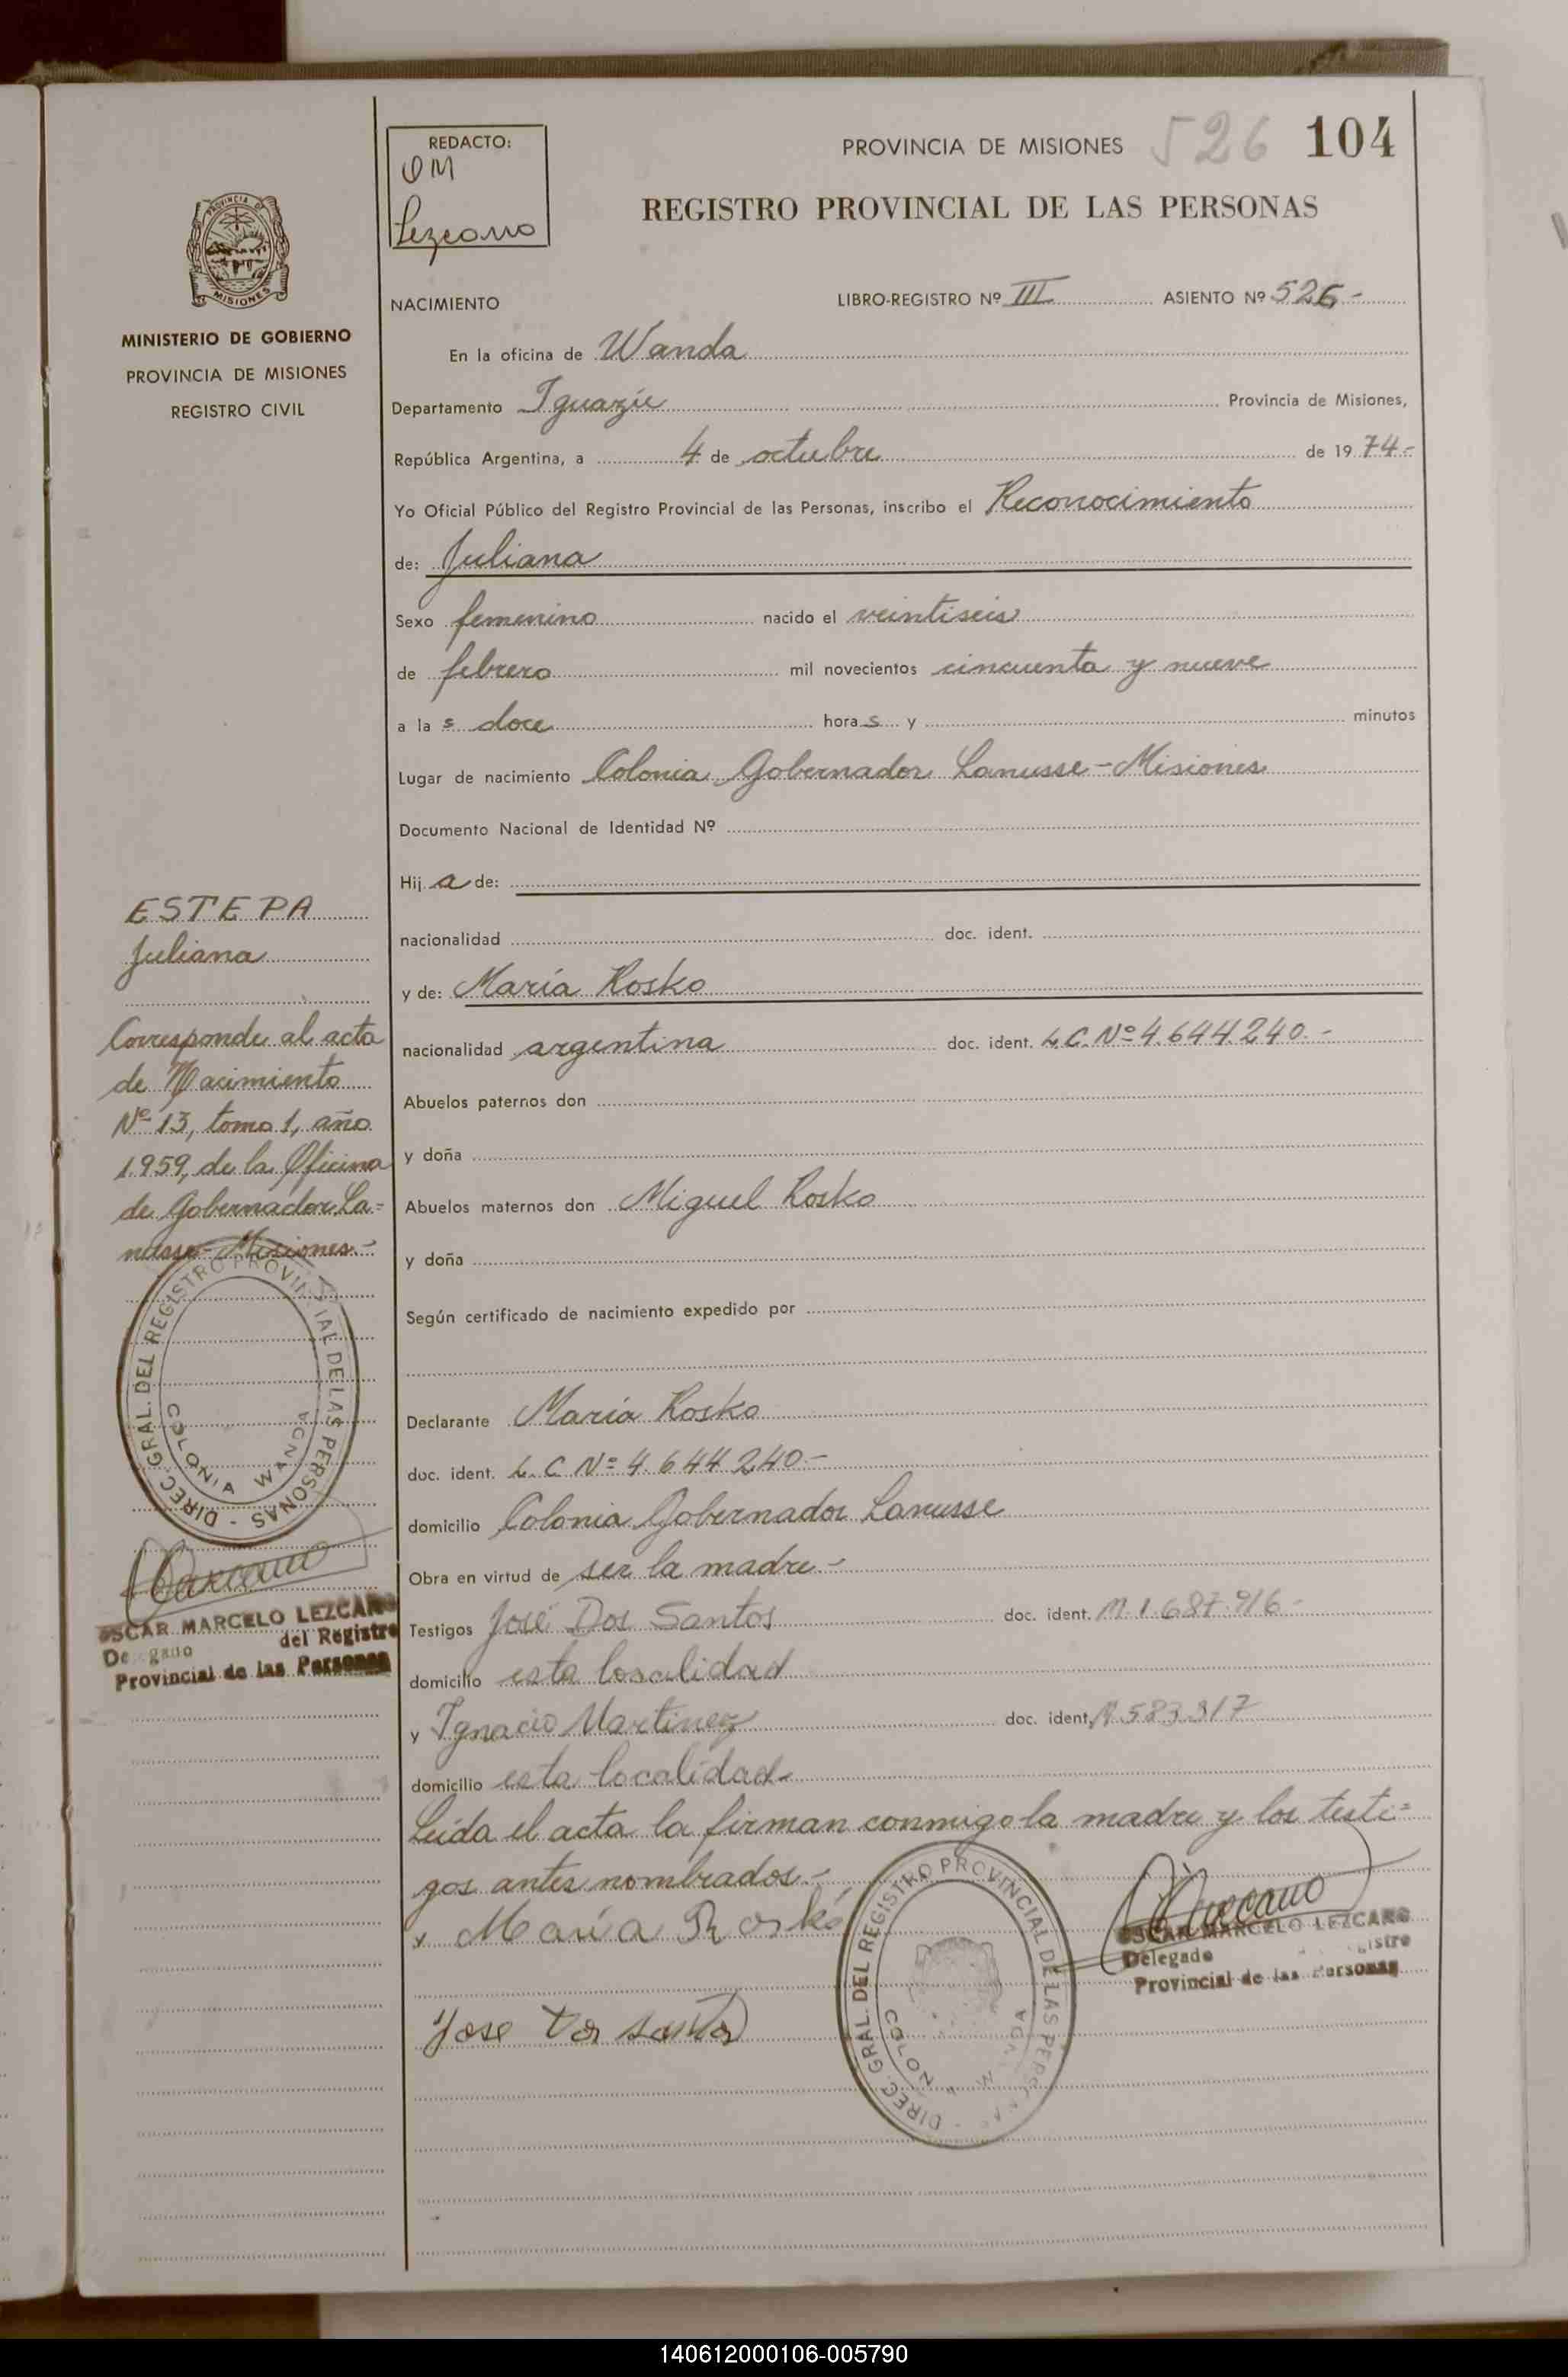 REDACTO:
OM
Lezcano
PROVINCIA DE MISIONES 526 104
REGISTRO PROVINCIAL DE LAS PERSONAS
PROVINCIA DE
MISIONES
MINISTERIO DE GOBIERNO
PROVINCIA DE MISIONES
REGISTRO CIVIL
NACIMIENTO LIBRO-REGISTRO Nº III ASIENTO Nº 526-
En la oficina de Wanda
Departamento Iguazú Provincia de Misiones,
República Argentina, a 4 de octubre de 1974.-
Yo Oficial Público del Registro Provincial de las Personas, inscribo el Reconocimiento
de: Juliana
Sexo femenino nacido el veintiseis
de febrero mil novecientos cincuenta y nueve
a la s doce hora s y minutos
Lugar de nacimiento Colonia Gobernador Lanusse-Misiones
Documento Nacional de Identidad Nº
Hij a de:
nacionalidad doc. ident.
y de: María Rosko
nacionalidad argentina doc. ident. L.C. Nº 4.644.240.-
Abuelos paternos don
y doña
Abuelos maternos don Miguel Rosko
y doña
Según certificado de nacimiento expedido por
Declarante María Rosko
doc. ident. L.C. Nº 4.644.240-
domicilio Colonia Gobernador Lanusse
Obra en virtud de ser la madre.-
Testigos José Dos Santos doc. ident. M.1.687.916-
domicilio esta localidad
y Ignacio Martinez doc. ident. 583.317
domicilio esta localidad-
Leída el acta la firman conmigo la madre y los testi=
gos antes nombrados.-
x María Roskó
Jose Dos santos
DIREC. GRAL. DEL REGISTRO PROVINCIAL DE LAS PERSONAS -
COLONIA WANDA
OSCAR MARCELO LEZCANO
Delegado
Provincial de las Personas
ESTEPA
Juliana
Corresponde al acta
de Nacimiento
Nº 13, tomo 1, año
1959, de la Oficina
de Gobernador La=
nusse-Misiones.-
DIREC. GRAL. DEL REGISTRO PROVINCIAL DE LAS PERSONAS -
COLONIA WANDA
OSCAR MARCELO LEZCANO
Delegado del Registro
Provincial de las Personas
140612000106-005790